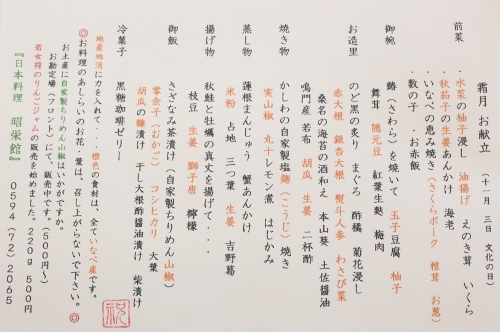 霜月 お献立 （十一月 三日 文化の日）
前菜
・水菜の柚子浸し 油揚げ えのき茸 いくら
・秋茄子の生姜あんかけ 海老
・いなべの恵み焼き（さくらポーク 椎茸 お葱）
・数の子 ・お赤飯
御椀
鰆（さわら）を焼いて 玉子豆腐 柚子
舞茸 隠元豆 紅葉生麩 梅肉
お造里
のど黒の炙り まぐろ 酢橘 菊花浸し
赤大根 銀杏大根 熨斗人参 わさび菜
桑名の海苔の酒和え 本山葵 土佐醬油
鳴門産若布 胡瓜 生姜 二杯酢
焼き物
かしわの自家製塩麹（こうじ）焼き
実山椒 丸十レモン煮 はじかみ
蒸し物
蓮根まんじゅう 蟹あんかけ
米粉 占地 三つ葉 生姜 吉野葛
揚げ物
秋鮭と牡蠣の真丈を揚げて・・・
枝豆 生姜 獅子唐 檸檬
御飯
さざなみ茶漬け（自家製ちりめん山椒）
零余子（むかご） コシヒカリ 大葉
胡瓜の麹漬け 干し大根酢醬油漬け 柴漬け
冷菓子
黒糖珈琲ゼリー
地産地消に力を入れて・・・橙色の食材は、全ていなべ産です。
◎お料理のあしらいのお花・葉は、召し上がらないで下さい。◎
お土産に自家製ちりめん山椒はいかがですか。
お勘定場（フロント）にて、販売中です。（500円〜）
若女将のりんごジャムの販売を始めました。220g 500円
『日本料理 昭栄館』 0594（72）2065
祝